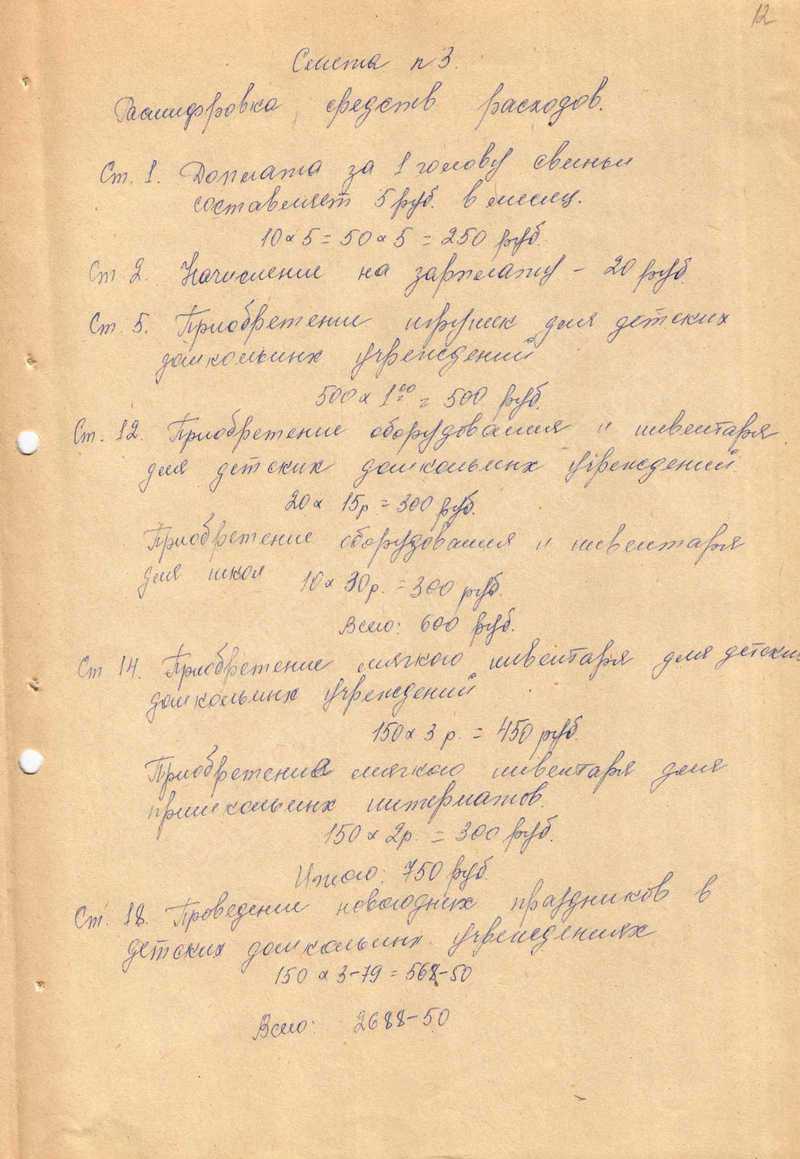 12
Смета п 3.
Расшифровка средств расходов.
Ст. 1. Доплата за 1 голову свиньи
составляет 5 руб. в месяц.
10 х 5 = 50 х 5 = 250 руб.
Ст. 2. Начисление на зарплату - 20 руб.
Ст. 5. Приобретение игрушек для детских
дошкольных учреждений
500 х 1 00 = 500 руб.
Ст. 12. Приобретение оборудования и инвентаря
для детских дошкольных учреждений
20 х 15 р = 300 руб.
Приобретение оборудования и инвентаря
для школ 10 х 30 р. = 300 руб.
Всего: 600 руб.
Ст 14. Приобретение мягкого инвентаря для детских
дошкольных учреждений
150 х 3 р. = 450 руб.
Приобретение мягкого инвентаря для
пришкольных интернатов.
150 х 2 р. = 300 руб.
Итого: 750 руб.
Ст. 18. Проведение новогодних праздников в
детских дошкольных учреждениях
150 х 3-79 = 568-50
Всего: 2688-50